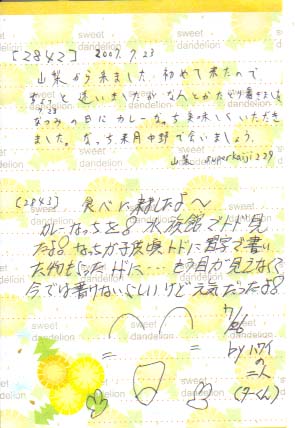 sweet dandelion sweet dandelion
[2842] 2007.7.23
山梨から来ました。初めて来たので
ちょっと迷いましたが なんとかたどり着きました
7/28
なつみの日にカレーなっち来味していただき
ました。なっち来月中野で会いましょう。
山梨 superkaiji229
[2843] 食べに来たよ〜
カレーなっちを8 水族館でトド見
たよ8 なっちが子供頃トドに習字で書い
た物もらったトドに… もう目が見えなくて
今では書けないらしいけど 元気だったよ8
7/26
by ハワイ
の
二人
(ターくん)
sweet dandelion sweet dandelion